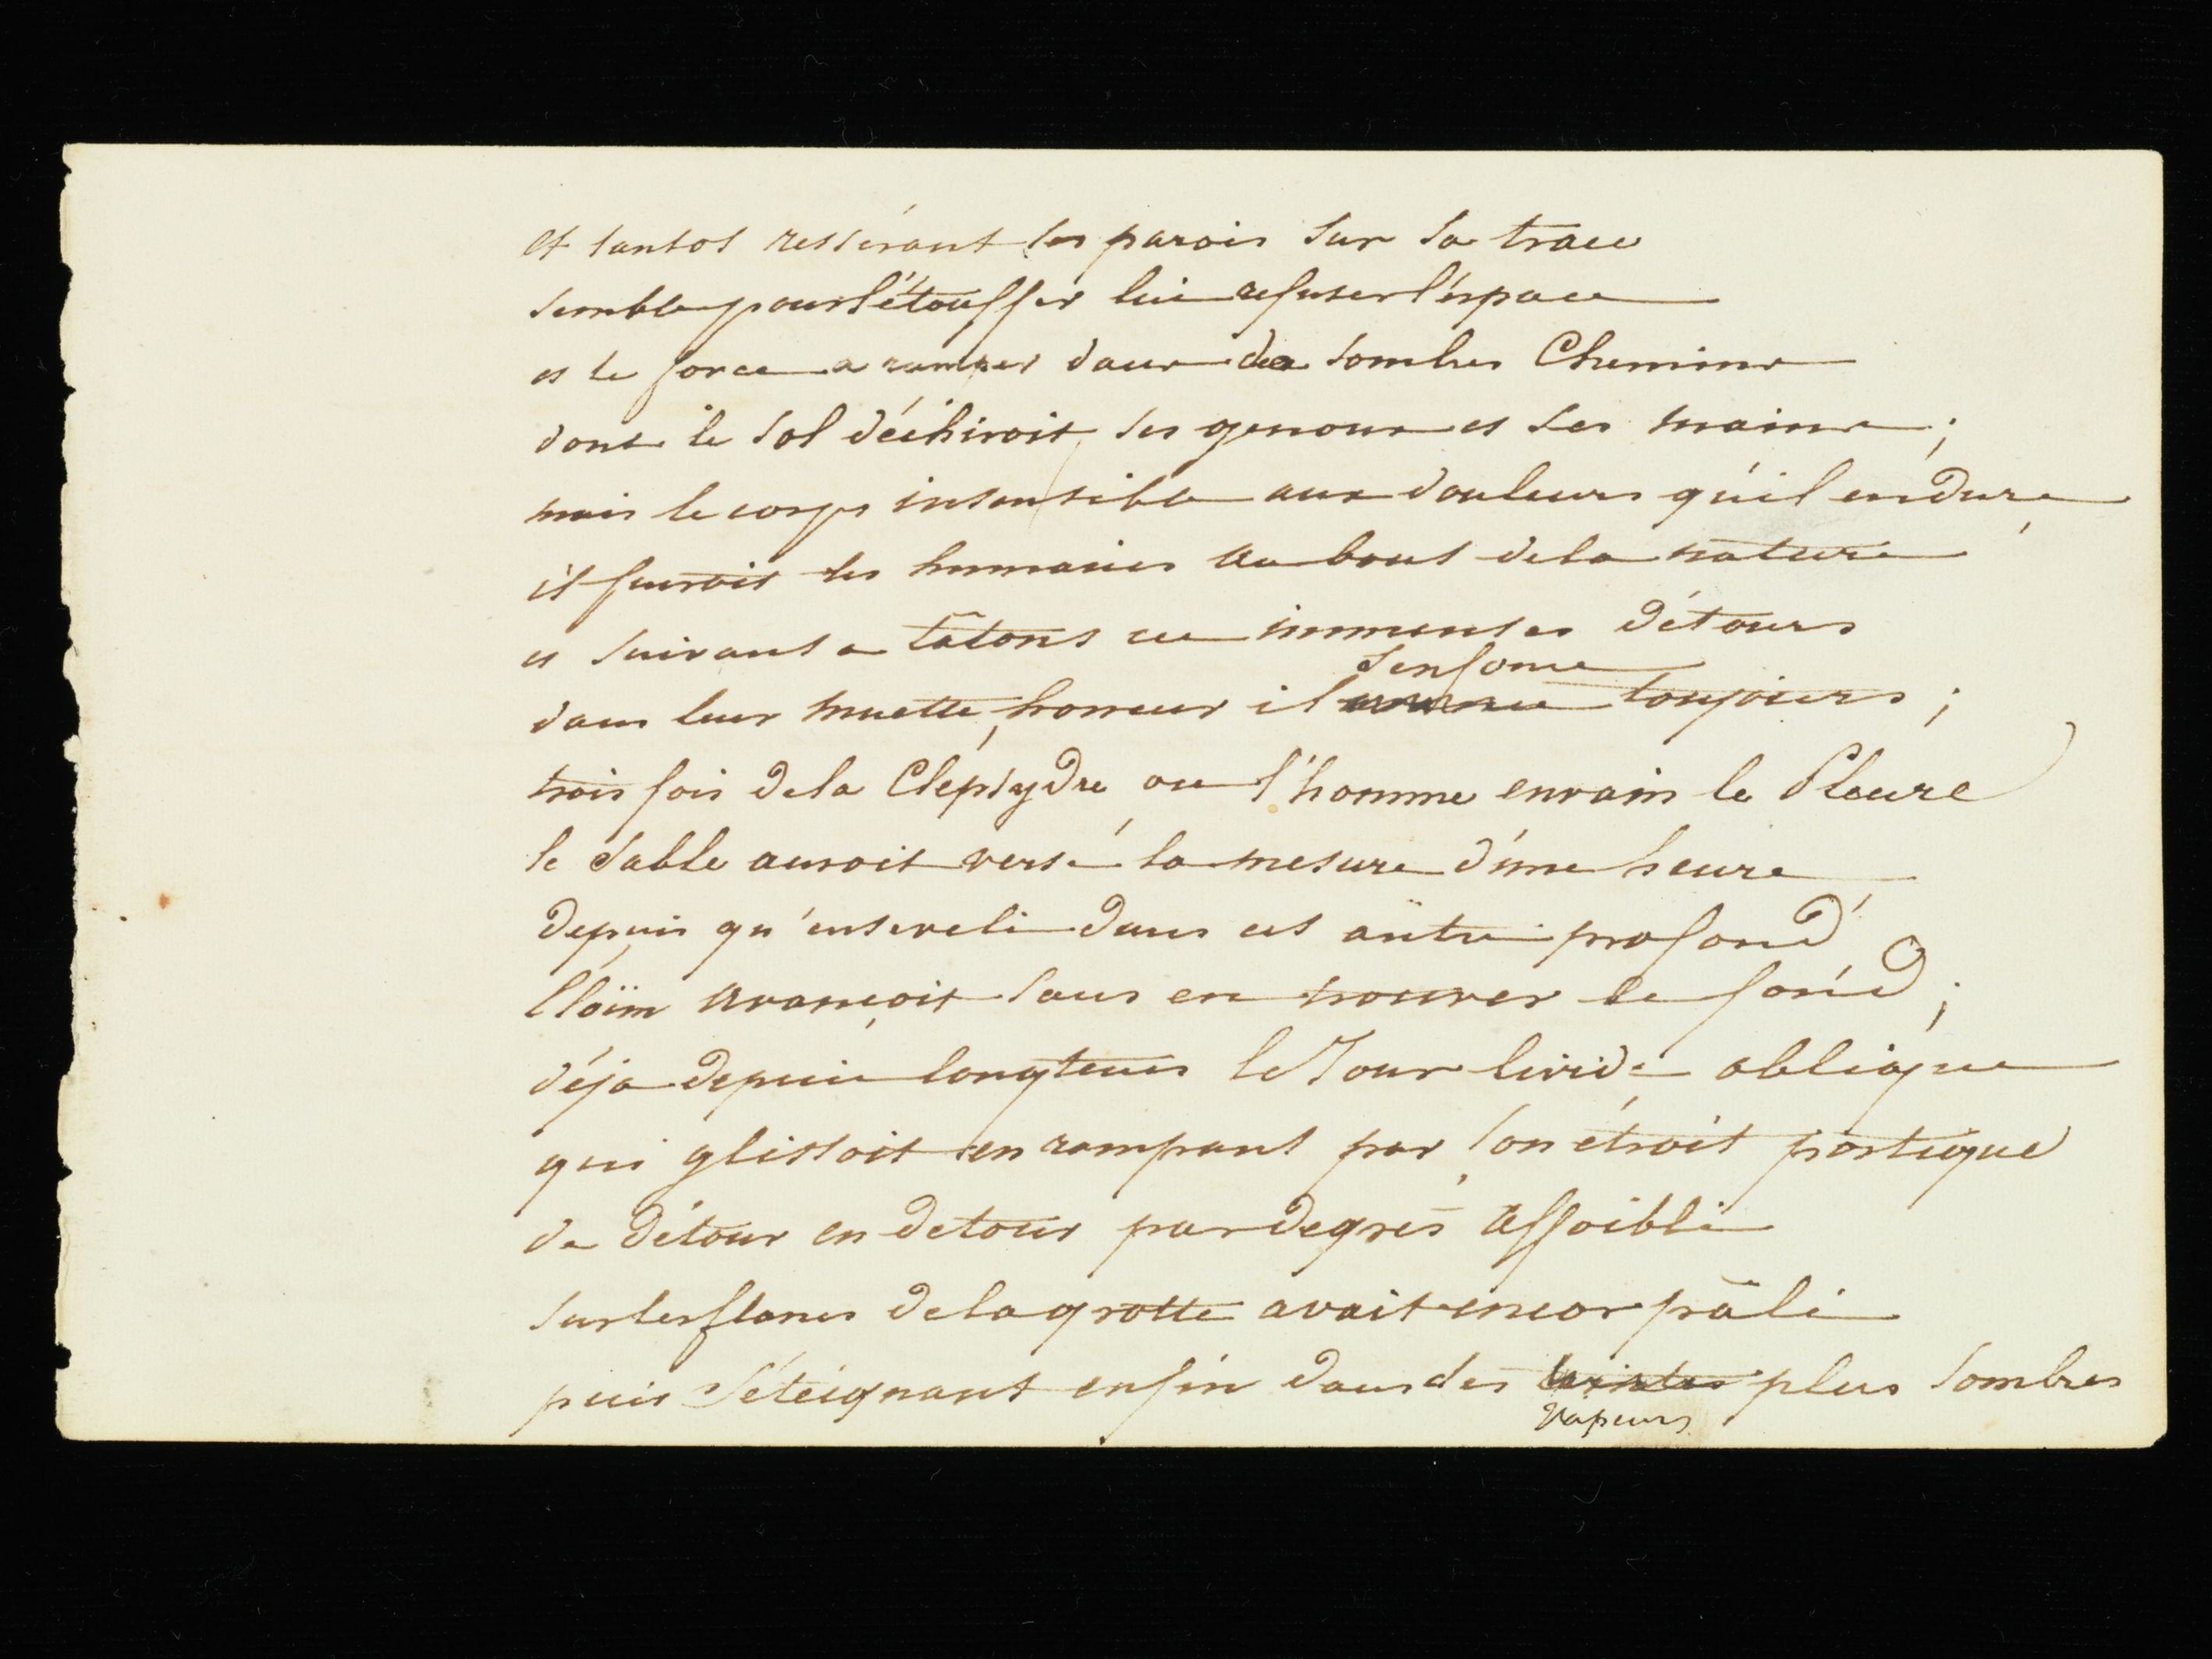 et tantot ressérant ses parois sur sa trace
semble pour l'étouffer lui refuser l'éspace
et le force a ramper dans de sombres Chemins
dont le sol déchiroit ses genoux et ses mains ;
mais le corps insensible aux douleurs qu'il endure,
il fuiroit les humains au bout de la nature
et suivant a tâtons ces immenses détours
s'enfonce
dans leur muette horreur il toujours ;
trois fois de la Clepsydre, ou l'homme envain le pleure
le sable auroit versé la mesure d'une heure
depuis qu'enseveli dans cet antre profond,
Cloïm avançoit sans en trouver le fond ;
déja depuis longtems le Jour livide oblique
qui glissoit en rampant par son étroit portique
de détour en detour par degrés affoibli
sur les flancs de la grotte avait encor pâli
puis s'éteignant enfin dans des teintes plus sombres
vapeurs